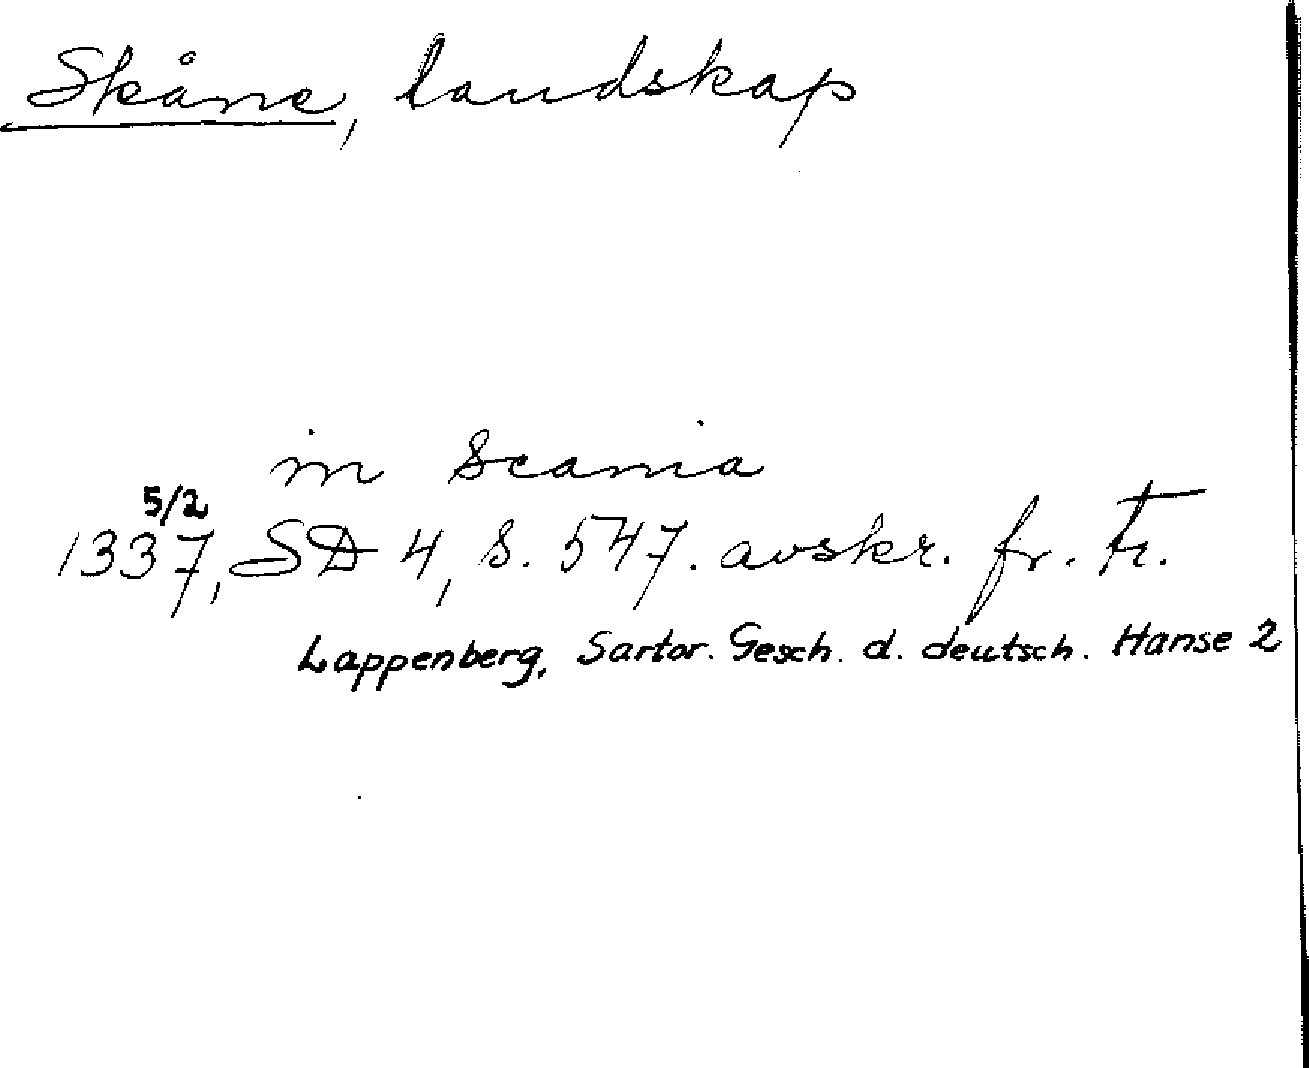 Skåne, landskap
in Scania
5/2
1337, SD 4, s. 547. avskr. fr. tr.
Lappenberg, Sartor. Gesch. d. deutsch. Hanse 2